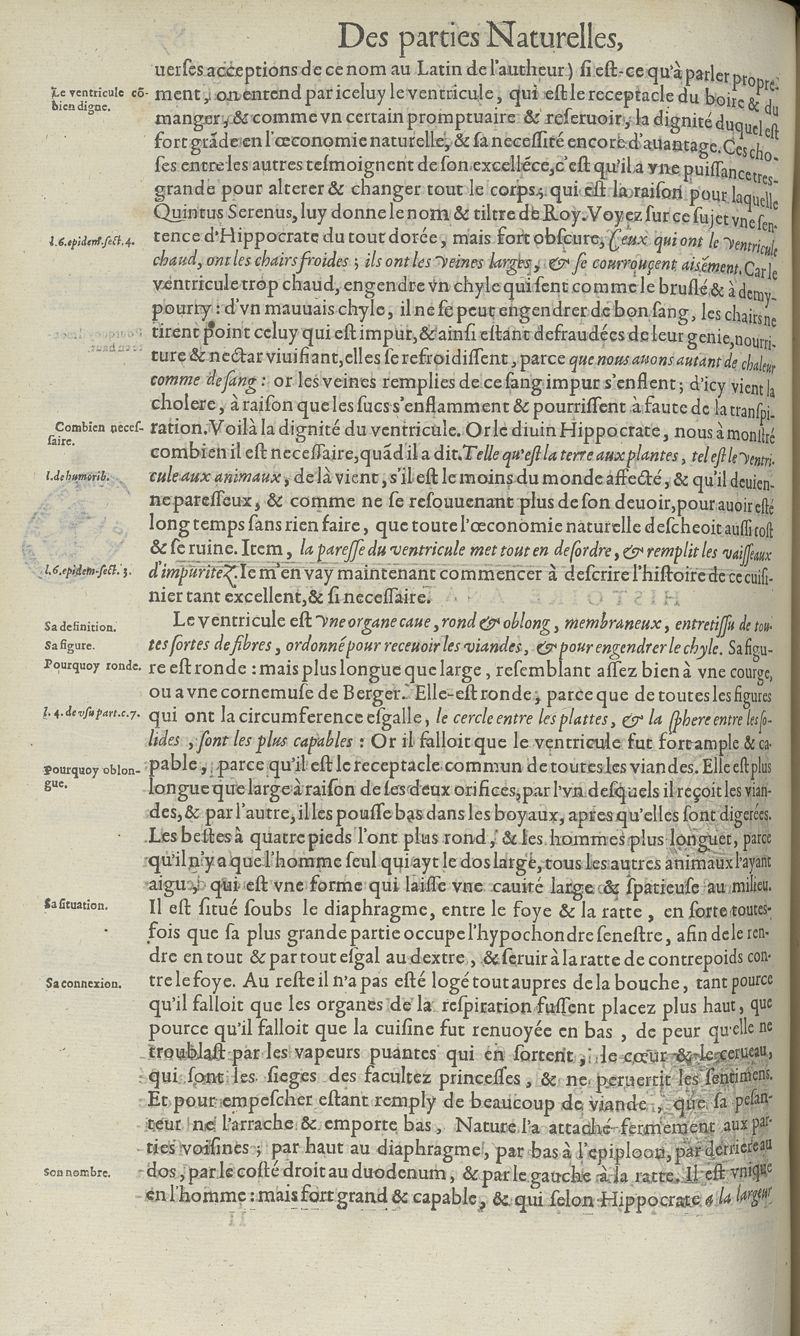 Des parties Naturelles,
uerſes acceptions de ce nom au Latin de l'autheur) ſi eſt-ce qu'à parler propre-
Le ventricule cõ-
bien digne.
ment, on entend par iceluy le ventricule, qui eſt le receptacle du boire & du
manger, & comme vn certain promptuaire & reſeruoir, la dignité duquel eſt
fort grãde en l'œconomie naturelle, & ſa neceſſité encore d'auantage. Ces cho-
ſes entre les autres teſmoignent de ſon excellẽce, c'eſt qu'il a vne puiſſance tres-
grande pour alterer & changer tout le corps; qui eſt la raiſon pour laquelle
Quintus Serenus, luy donne le nom & tiltre de Roy. Voyez ſur ce ſujet vne ſen-
l.6.epidem.ſect.4.
tence d'Hippocrate du tout dorée, mais fort obſcure, Ceux qui ont le ventricule
chaud, ont les chairs froides; ils ont les veines larges, & ſe courrouçent aisément. Car le
ventricule trop chaud, engendre vn chyle qui ſent comme le bruſlé & à demy
pourry: d'vn mauuais chyle, il ne ſe peut engendrer de bon ſang, les chairs ne
tirent point celuy qui eſt impur, & ainſi eſtant defraudées de leur genie, nourri-
ture & nectar viuifiant, elles ſe refroidiſſent, parce que nous auons autant de chaleur
comme de ſang: or les veines remplies de ce ſang impur s'enflent; d'icy vient la
cholere, à raiſon que les ſucs s'enflamment & pourriſſent à faute de la tranſpi-
Combien neceſ-
ſaire.
ration. Voilà la dignité du ventricule. Or le diuin Hippocrate, nous à monſtré
combien il eſt neceſſaire, quãd il a dit. Telle qu'eſt la terre aux plantes, tel eſt le ventri-
l.de humorib.
cule aux animaux, de là vient, s'il eſt le moins du monde affecté, & qu'il deuien-
ne pareſſeux, & comme ne ſe reſouuenant plus de ſon deuoir, pour auoir eſté
long temps ſans rien faire, que toute l'œconomie naturelle deſcheoit auſſi toſt
& ſe ruine. Item, la pareſſe du ventricule met tout en deſordre, & remplit les vaiſſeaux
l.6.epidem-ſect. 3.
d'impuritez. Ie m'en vay maintenant commencer à deſcrire l'hiſtoire de ce cuiſi-
nier tant excellent, & ſi neceſſaire.
Sa definition.
Le ventricule eſt vne organe caue, rond & oblong, membraneux, entretiſſu de tou-
Sa figure.
tes ſortes de fibres, ordonné pour receuoir les viandes, & pour engendrer le chyle. Sa figu-
Pourquoy ronde.
re eſt ronde: mais plus longue que large, reſemblant aſſez bien à vne courge,
ou a vne cornemuſe de Berger. Elle-eſt ronde, parce que de toutes les figures
l. 4. de vſu part.c.7.
qui ont la circumference eſgalle, le cercle entre les plattes, & la ſphere entre les ſo-
lides, ſont les plus capables: Or il falloit que le ventricule fut fort ample & ca-
Pourquoy oblon-
gue.
pable, parce qu'il eſt le receptacle commun de toutes les viandes. Elle eſt plus
longue que large à raiſon de ſes deux orifices, par l'vn deſquels il reçoit les vian-
des, & par l'autre, il les pouſſe bas dans les boyaux, apres qu'elles ſont digerées.
Les beſtes à quatre pieds l'ont plus rond, & les hommes plus longuet, parce
qu'il n'y a que l'homme ſeul qui ayt le dos large, tous les autres animaux l'ayant
aigu, qui eſt vne forme qui laiſſe vne cauité large & ſpatieuſe au milieu.
Sa ſituation.
Il eſt ſitué ſoubs le diaphragme, entre le foye & la ratte, en ſorte toutes-
fois que ſa plus grande partie occupe l'hypochondre ſeneſtre, afin de le ren-
dre en tout & par tout eſgal au dextre, & ſeruir à la ratte de contrepoids con-
Sa connexion.
tre le foye. Au reſte il n'a pas eſté logé tout aupres de la bouche, tant pource
qu'il falloit que les organes de la reſpiration fuſſent placez plus haut, que
pource qu'il falloit que la cuiſine fut renuoyée en bas, de peur qu'elle ne
troublaſt par les vapeurs puantes qui en ſortent, le cœur & le cerueau,
qui ſont les ſieges des facultez princeſſes, & ne peruertit les ſentimens.
Et pour empeſcher eſtant remply de beaucoup de viande, que ſa peſan-
teur ne l'arrache & emporte bas, Nature l'a attaché fermement aux par-
ties voiſines; par haut au diaphragme, par bas à l'epiploon, par derriere au
Son nombre.
dos, par le coſté droit au duodenum, & par le gauche à la ratte. Il eſt vnique
en l'homme: mais fort grand & capable, & qui ſelon Hippocrate a la largeur